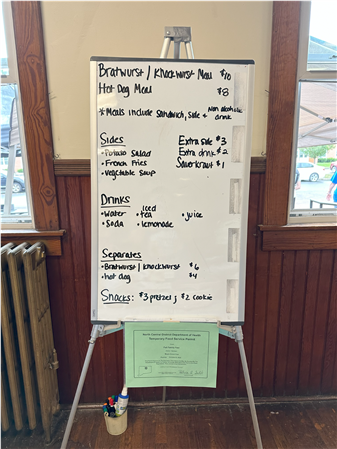 Bratwurst / Knockwurst Meal $10
Hot Dog Meal $8
*Meals include Sandwich, Side + Non alcoholic drink
Sides
• Potato Salad
• French Fries
• Vegetable Soup
Extra side $3
Extra drink $2
Sauerkraut $1
Drinks
• Water • iced tea • juice
• Soda • lemonade
Separates
• Bratwurst / knockwurst $6
• hot dog $4
Snacks: $3 pretzel ; $2 cookie
Temporary Food Service Permit